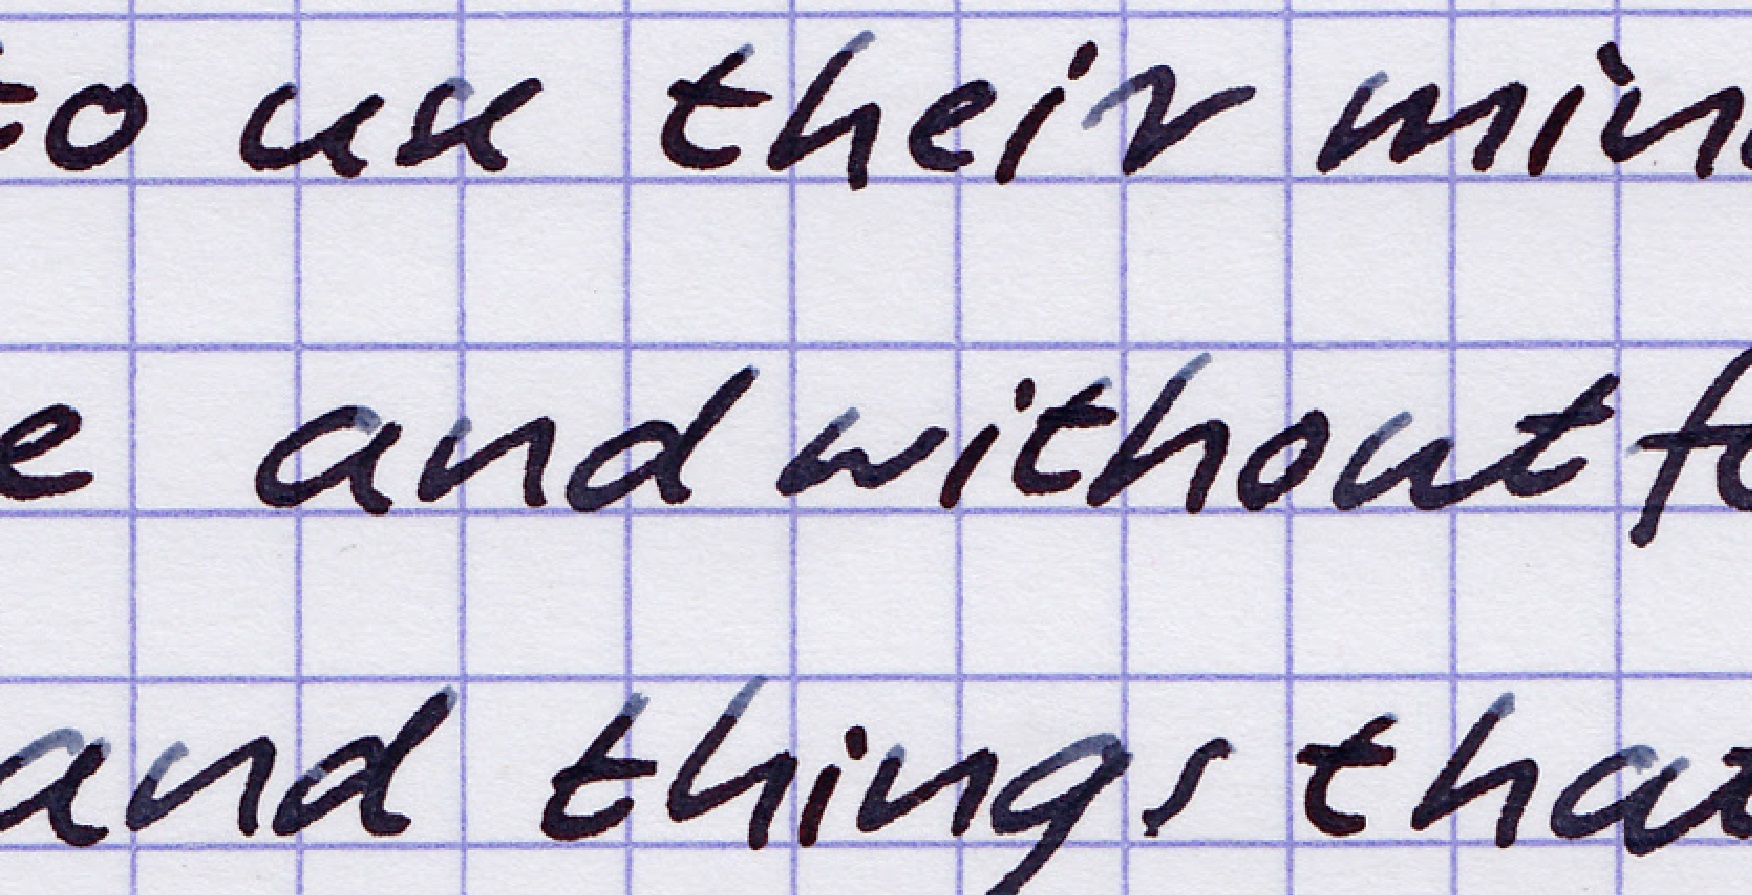 to use their min
e and without fo
and things that